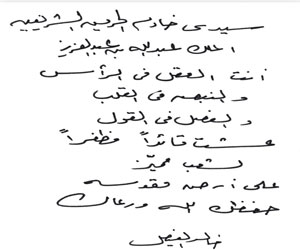 سيدي خادم الحرمين الشريفين
الملك عبدالله بن عبدالعزيز
أنت العقل في الرأس
والنبض في القلب
والفصل في القول
عشت قائداً مظفراً
لشعب مميّز
على أرض مقدسه
حفظك الله ورعاك